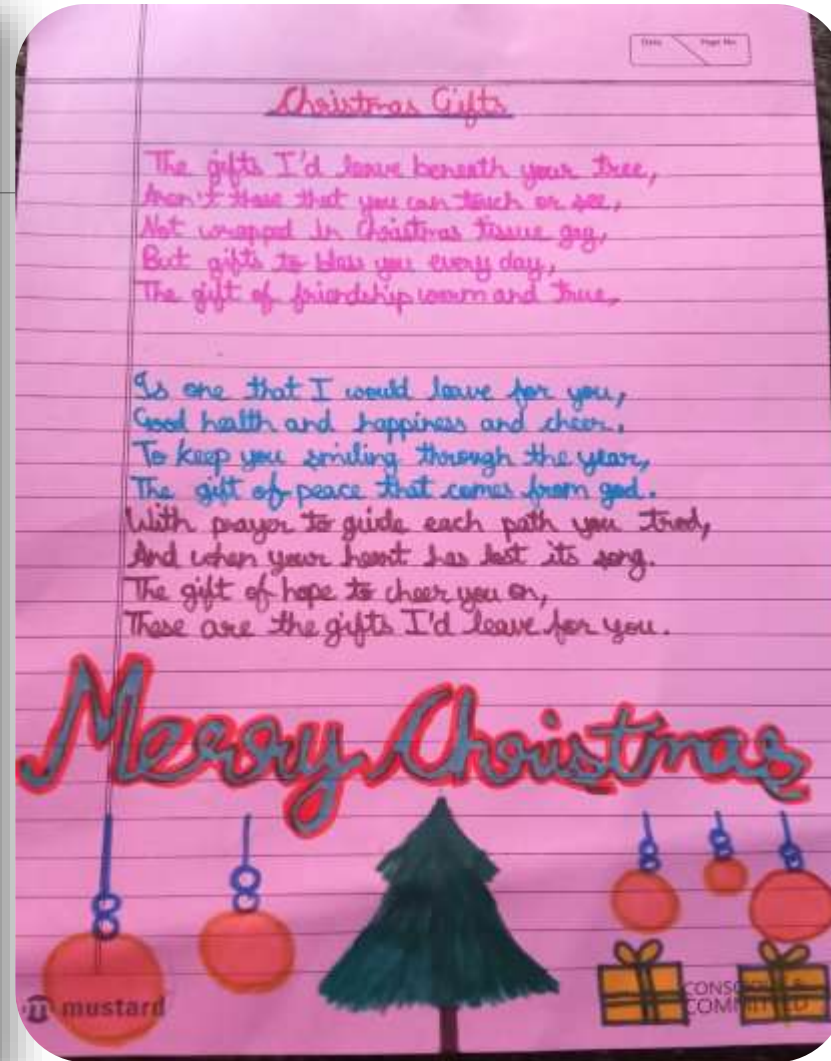 Date Page No.
Christmas Gifts
The gifts I'd leave beneath your tree,
Aren't those that you can touch or see,
Not wrapped in Christmas tissue gay,
But gifts to bless you every day,
The gift of friendship warm and true,
Is one that I would leave for you,
Good health and happiness and cheer.
To keep you smiling through the year,
The gift of peace that comes from god.
With prayer to guide each path you trod,
And when your heart has lost its song.
The gift of hope to cheer you on,
These are the gifts I'd leave for you.
Merry Christmas
mustard
CONSCIOUS &
COMMITTED